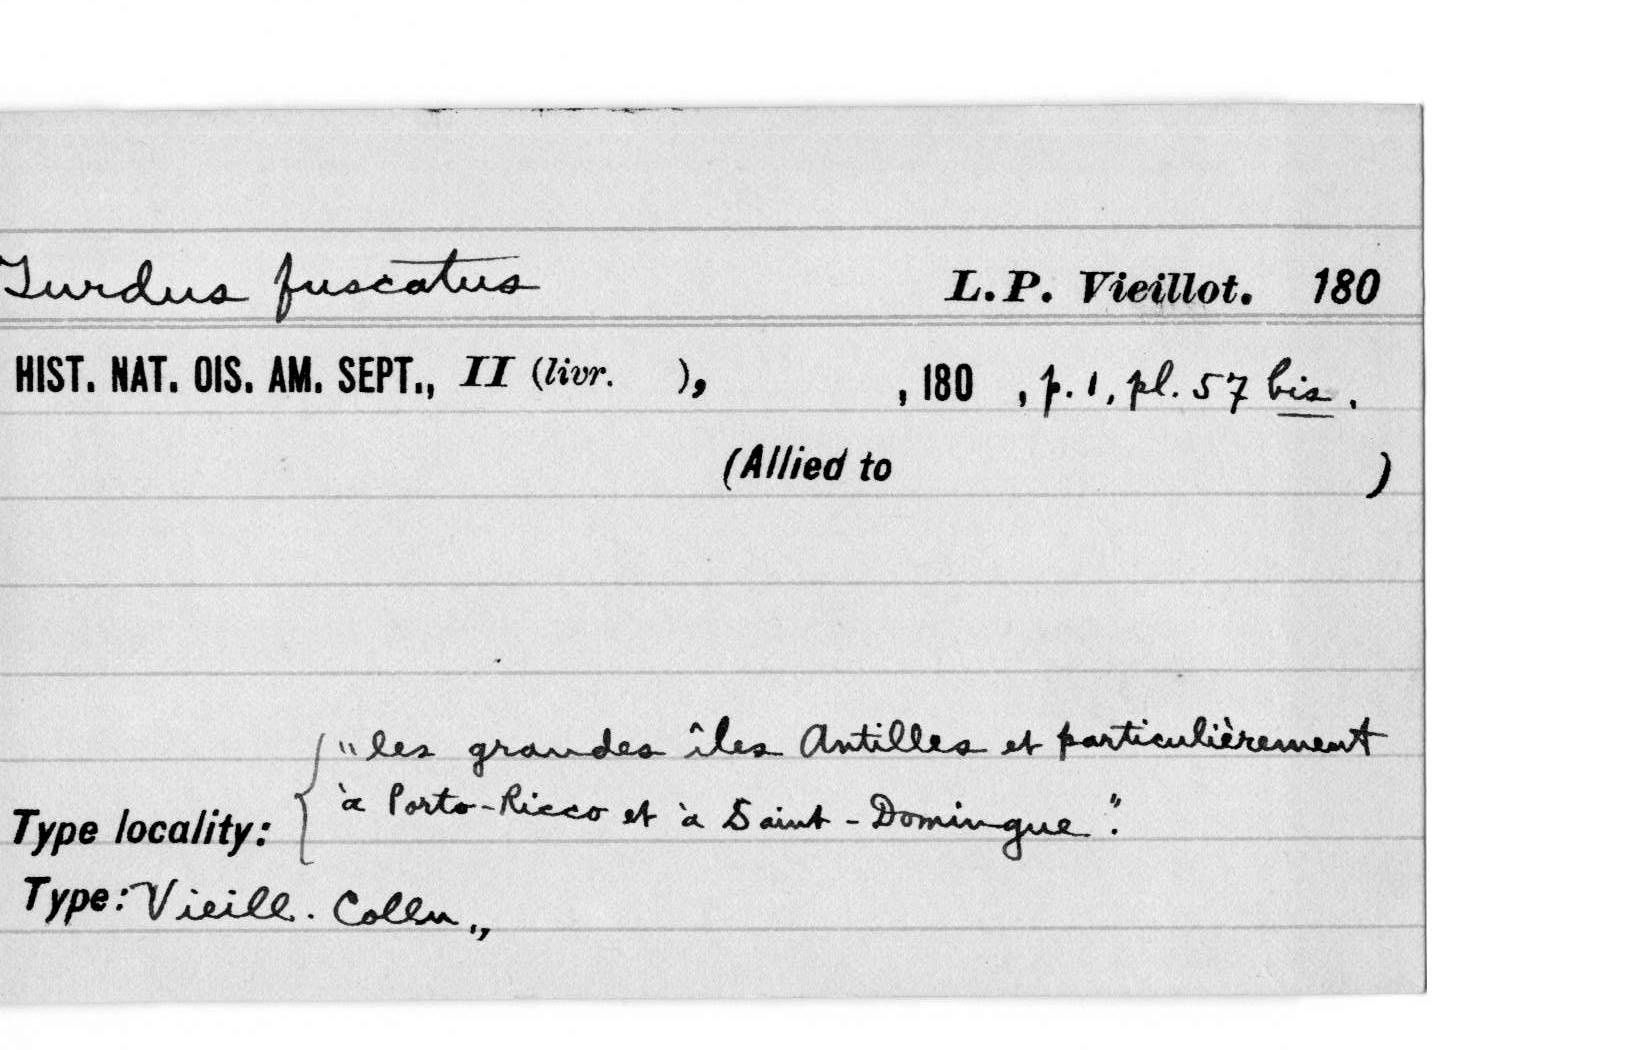 Turdus fuscatus L.P. Vieillot. 180
HIST. NAT. OIS. AM. SEPT., II (livr. ), , 180 , p. 1, pl. 57 bis .
(Allied to )
"les grandes îles Antilles et particulièrement
à Porto-Ricco et à Saint-Domingue".
Type locality:
Type: Vieill. Colln.,